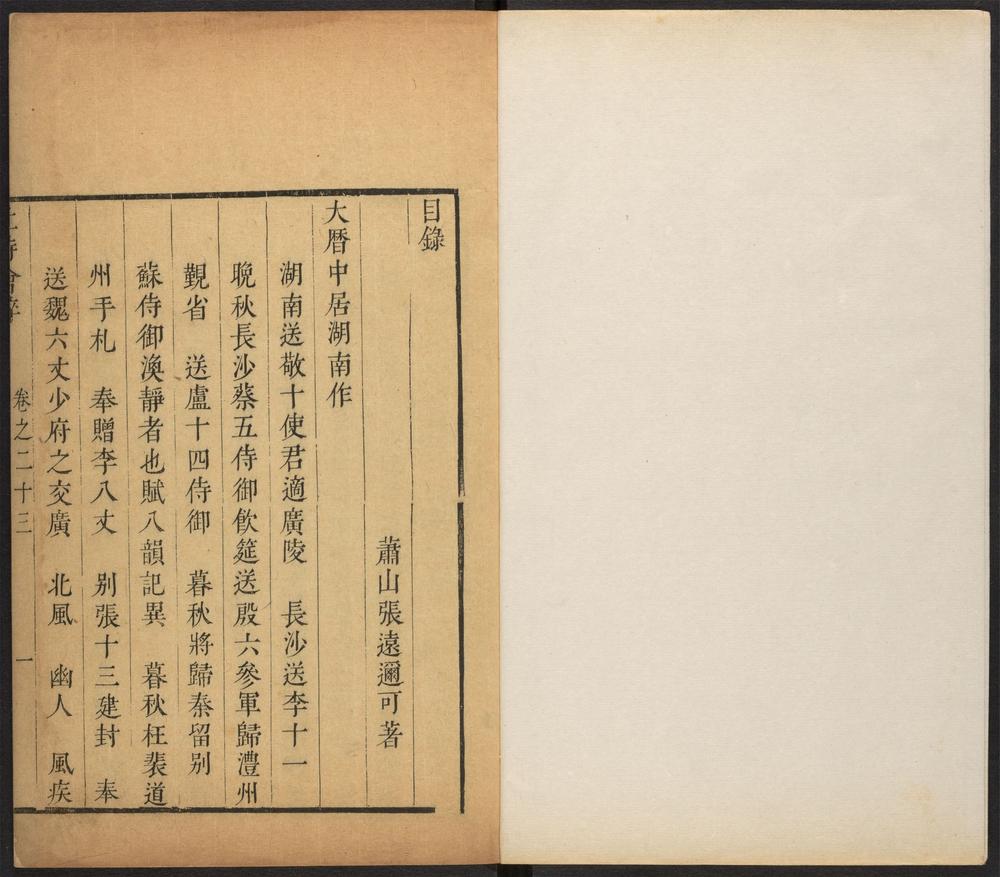 目錄
蕭山張遠邇可著
大曆中居湖南作
湖南送敬十使君適廣陵　長沙送李十一
晚秋長沙蔡五侍御飲筵送殷六參軍歸澧州
覲省　送盧十四侍御　暮秋將歸秦留别
蘇侍御渙靜者也賦八韻記異　暮秋枉裴道
州手札　奉贈李八丈　别張十三建封　奉
送魏六丈少府之交廣　北風　幽人　風疾
卷之二十三　一